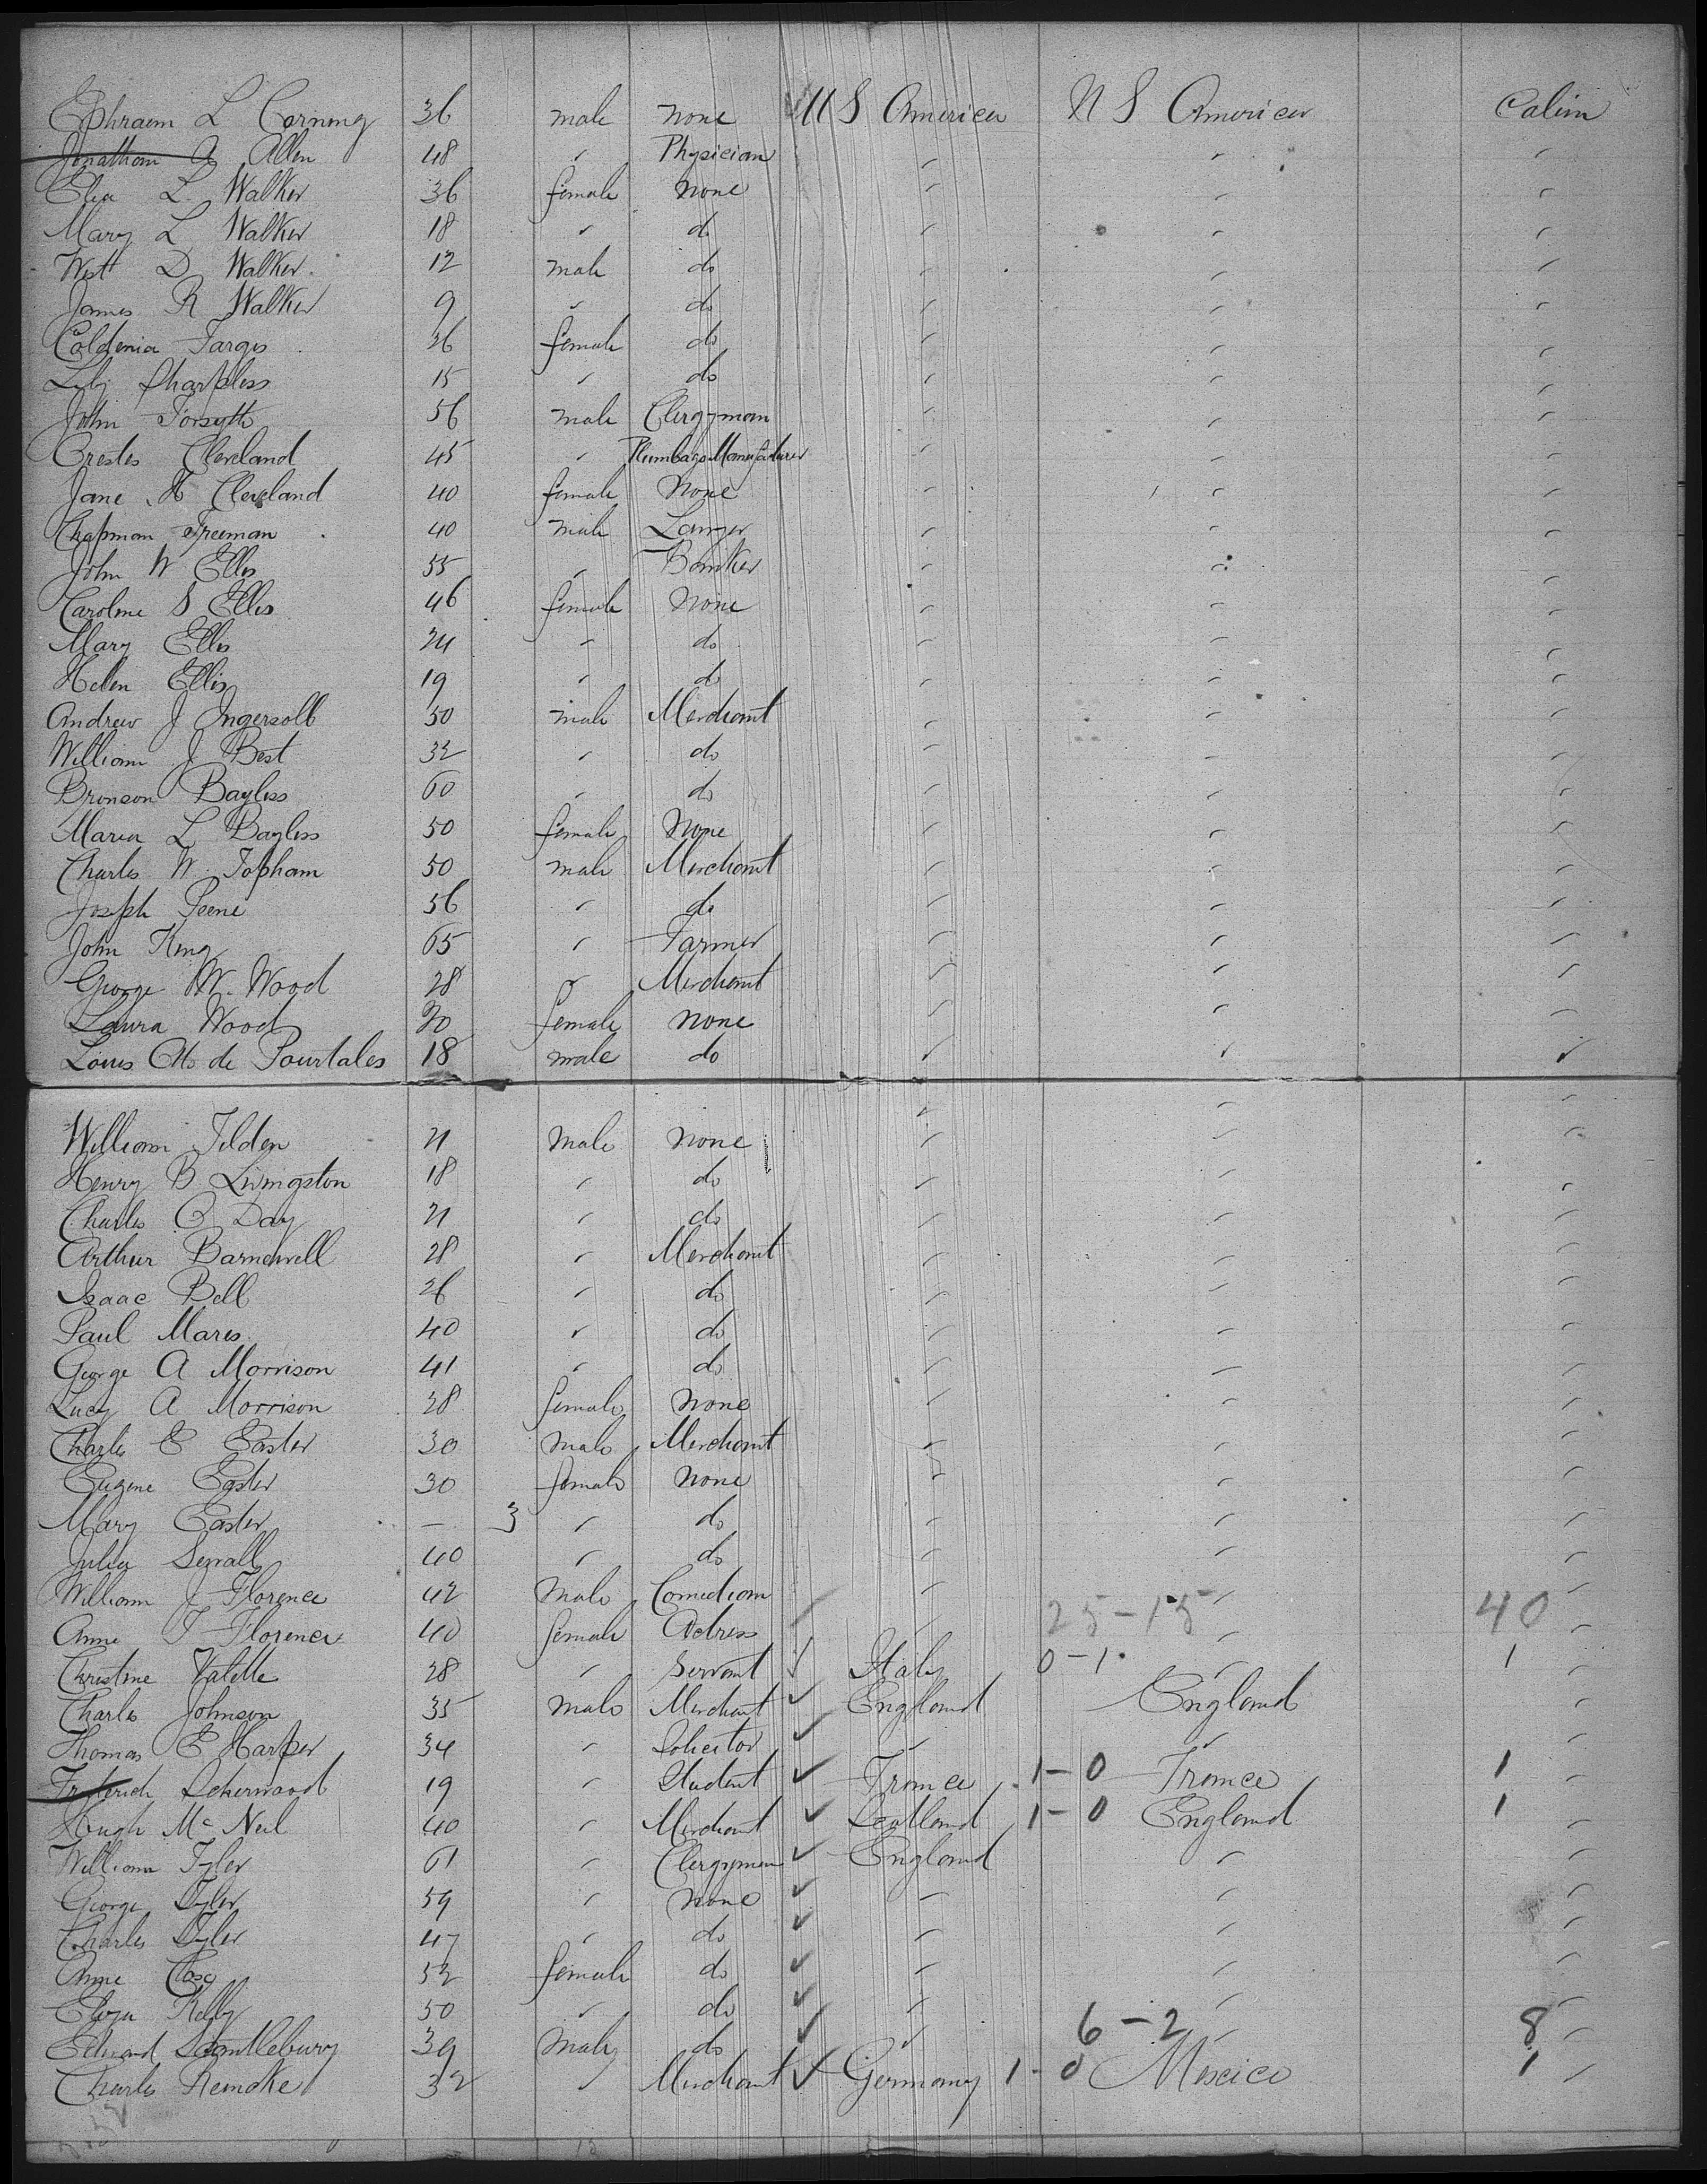 Ephraem L Corning 36 male none U S America U S America Cabin
Jonathan A Allen 48 " Physician " " "
Eliza L. Walker 36 female none " " "
Mary L Walker 18 " do " " "
West D Walker 12 male do " " "
James R Walker 9 " do " " "
Coldenia Farges 36 female do " " "
Lily Sharpless 15 " do " " "
John Forsyth 56 male Clergyman " " "
Orestes Cleveland 45 " Plumbago Manufacturer " " "
Jane H Cleveland 40 female None " " "
Chapman Freeman 40 male Lawyer " " "
John W Ellis 55 " Banker " " "
Caroline S Ellis 46 female None " " "
Mary Ellis 24 " do " " "
Helen Ellis 19 " do " " "
Andrew J Ingersoll 50 male Merchant " " "
William J Best 32 " do " " "
Bronson Bayliss 60 " do " " "
Maria L Bayliss 50 female None " " "
Charles W. Topham 50 male Merchant " " "
Joseph Peene 56 " do " " "
John King 65 " Farmer " " "
George W. Wood 28 " Merchant " " "
Laura Wood 20 female none " " "
Louis Oto de Pourtales 18 male do " " "
William Tilden 21 Male none " " "
Henry B Livingston 18 " do " " "
Charles O Day 21 " do " " "
Arthur Barnewell 28 " Merchant " " "
Isaac Bell 26 " do " " "
Paul Mares 40 " do " " "
George A Morrison 41 " do " " "
Lucy A Morrison 28 female none " " "
Charles E Easter 30 Male Merchant " " "
Eugene Easter 30 female none " " "
Mary Easter — 3 " do " " "
Julia Sewall 40 " do " " "
William J Florence 42 Male Comedian " 25-15 " 40 "
Anne T Florence 40 female Actress " " "
Christine Valette 28 " Servant Italy 0-1 " 1 "
Charles Johnson 35 Male Merchant England England "
Thomas E Harper 34 " Solicitor " " "
Frederick Scherwood 19 " Student France 1-0 France 1 "
Hugh Mc Neil 40 " Merchant Scotland 1-0 England 1 "
William Tyler 61 " Clergyman England " "
George Tyler 59 " None " " "
Charles Tyler 47 " do " " "
Anne Close 52 female do " " "
Eliza Kelly 50 " do " " "
Edward Scantlebury 39 Male do " 6-2 " 8 "
Charles Remcke 32 " Merchant Germany 1-0 Mexico 1 "